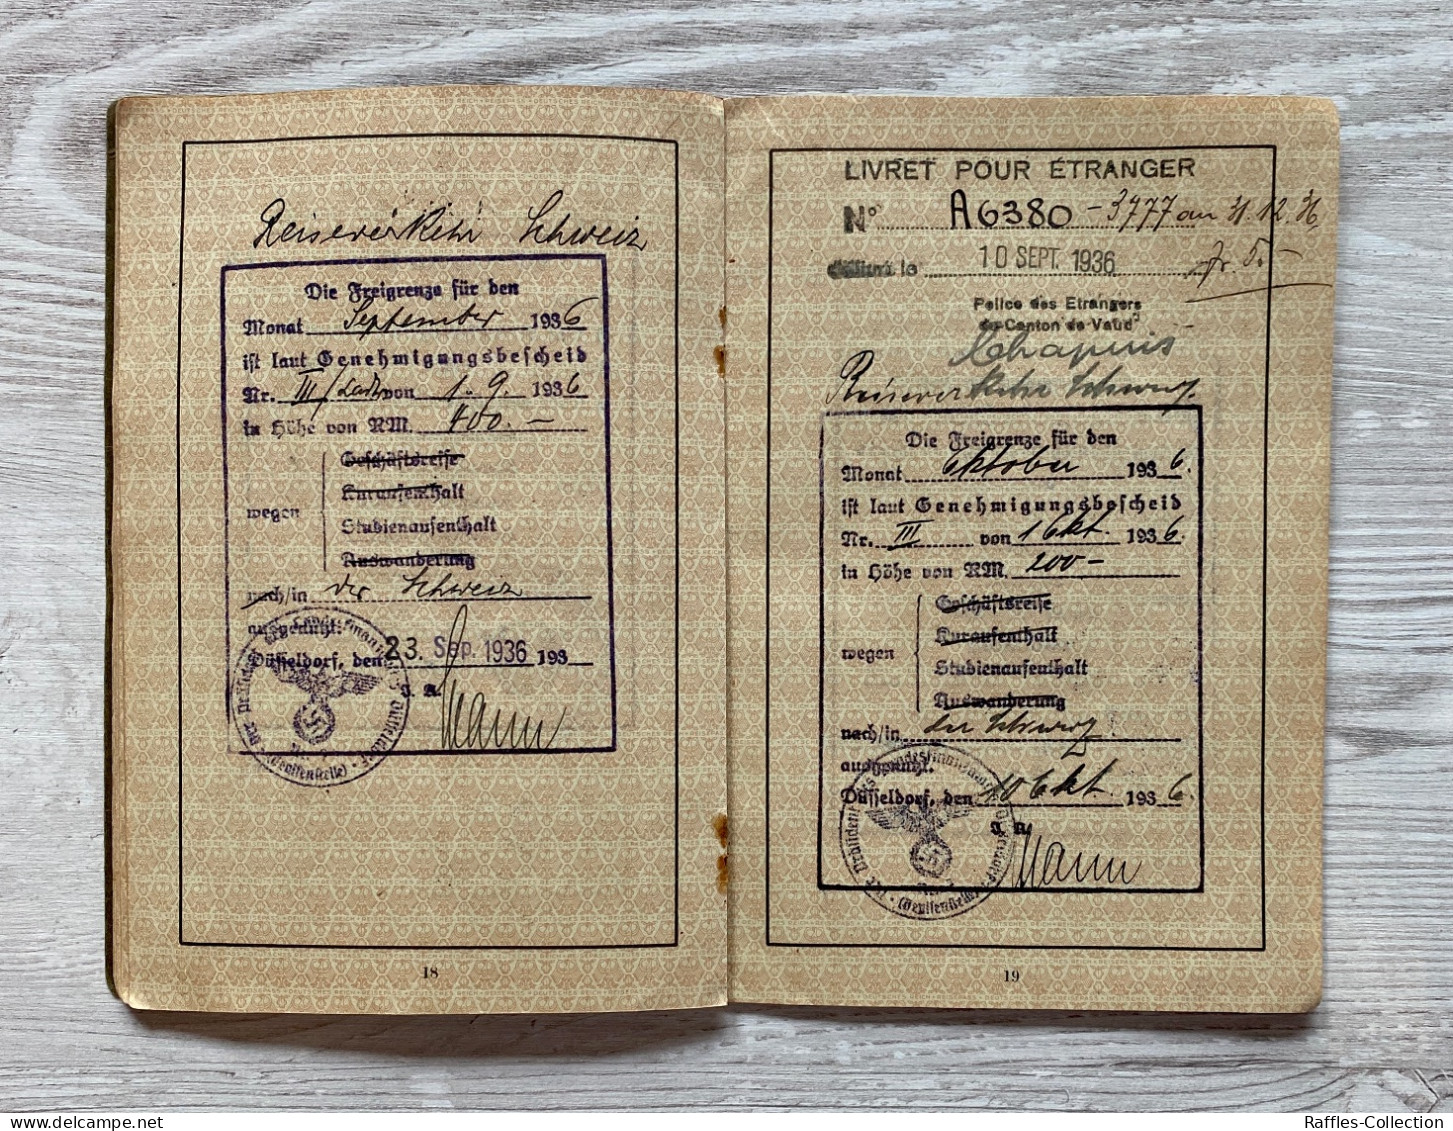 Reiseverkehr Schweiz
Die Freigrenze für den
Monat September 1936
ist laut Genehmigungsbescheid
Nr. III/ von 1. 9. 1936
in Höhe von RM. 400.—
Geschäftsreise
Kuraufenthalt
wegen
Studienaufenthalt
Auswanderung
nach/in der Schweiz
ausgenützt.
Düsseldorf, den 23. Sep. 1936 193
J. A.
Mann
(Devisenstelle)
18
LIVRET POUR ÉTRANGER
N° A6380 - 3777 au 31.12.36
délivré le 10 SEPT. 1936 fr. 5.-
Police des Etrangers
du Canton de Vaud
Chapuis
Reiseverkehr Schweiz
Die Freigrenze für den
Monat Oktober 1936.
ist laut Genehmigungsbescheid
Nr. III von 1 Okt. 1936.
in Höhe von RM. 200-
Geschäftsreise
Kuraufenthalt
wegen
Studienaufenthalt
Auswanderung
nach/in der Schweiz
ausgenützt.
Düsseldorf, den 10 Okt. 1936.
J. A.
Mann
(Devisenstelle)
19
Raffles-Collection